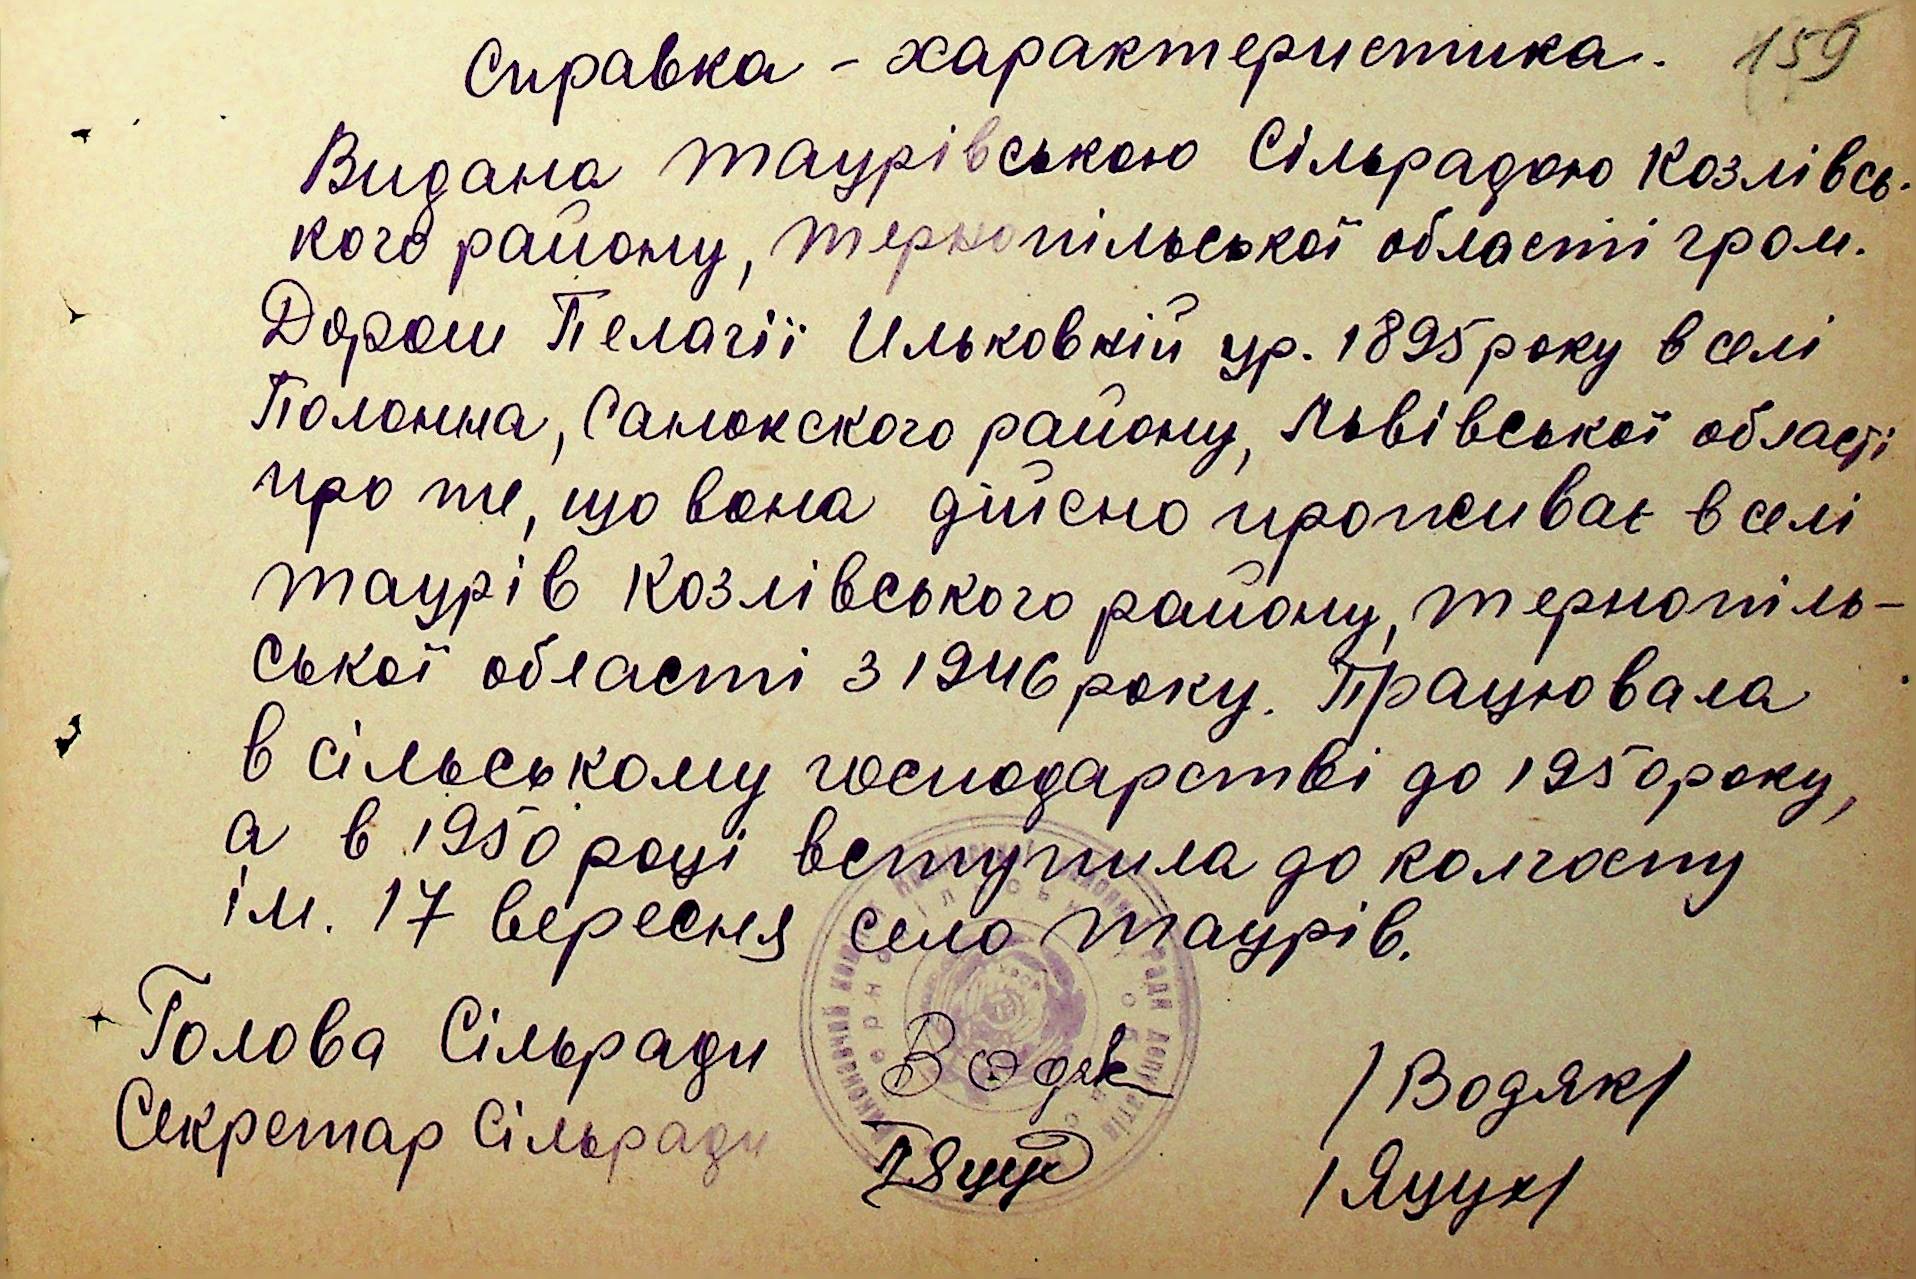 Справка - характеристика. 159
Видана Таурівською Сільрадою Козлівсь-
кого району, Тернопільської області гром.
Дорош Пелагії Ильковній ур. 1895 року в селі
Полонна, Санокского району, Львівської області
про те, що вона дійсно проживає в селі
Таурів Козлівського району, Тернопіль-
ської області з 1946 року. Працювала
в сільському господарстві до 1950 року,
а в 1950 році вступила до колгоспу
ім. 17 вересня село Таурів.
Голова Сільради Водяк /Водяк/
Секретар Сільради Яцук /Яцук/